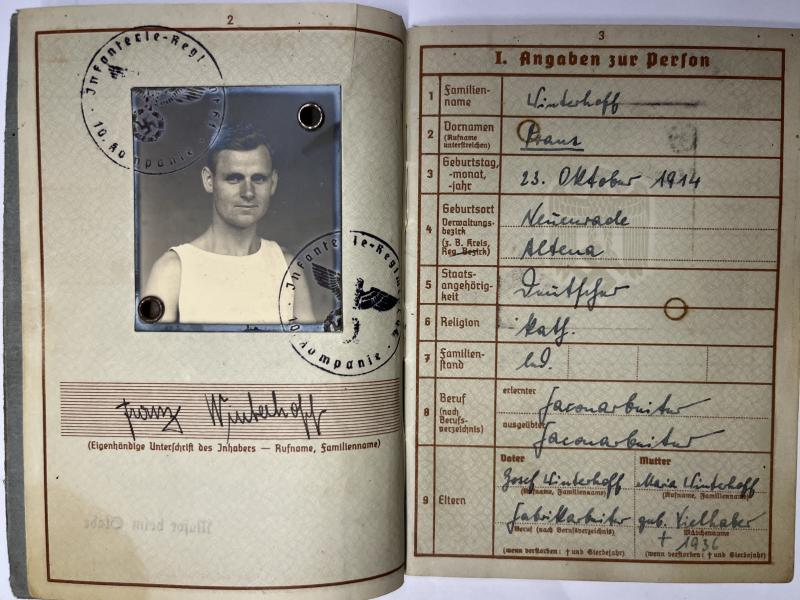 2
Infanterie-Regt
10. Kompanie
Infanterie-Regiment
10. Kompanie
Franz Winterhoff
(Eigenhändige Unterschrift des Inhabers — Rufname, Familienname)
3
I. Angaben zur Person
1 Familien-
name
Winterhoff
2 Vornamen
(Rufname
unterstreichen)
Franz
3 Geburtstag,
-monat,
-jahr
23. Oktober 1914
4 Geburtsort
Verwaltungs-
bezirk
(z. B. Kreis,
Reg.-Bezirk)
Neuenrade
Altena
5 Staats-
angehörig-
keit
Deutscher
6 Religion
kath.
7 Familien-
stand
led.
8 Beruf
(nach
Berufs-
verzeichnis)
erlernter
Faconarbeiter
ausgeübter
Faconarbeiter
9 Eltern
Vater
Josef Winterhoff
(Rufname, Familienname)
Fabrikarbeiter
Beruf (nach Berufsverzeichnis)
(wenn verstorben: † und Sterbejahr)
Mutter
Maria Winterhoff
(Rufname, Familienname)
geb. Vielhaber
Mädchenname
† 1936
(wenn verstorben: † und Sterbejahr)